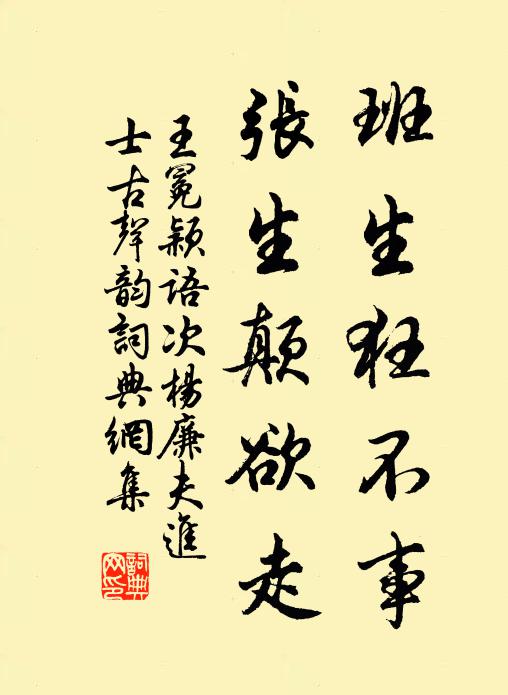 班生狂不事
張生顛欲走
王冕穎語次楊廉夫進
士古聲韵詞典網集
詞典
网印